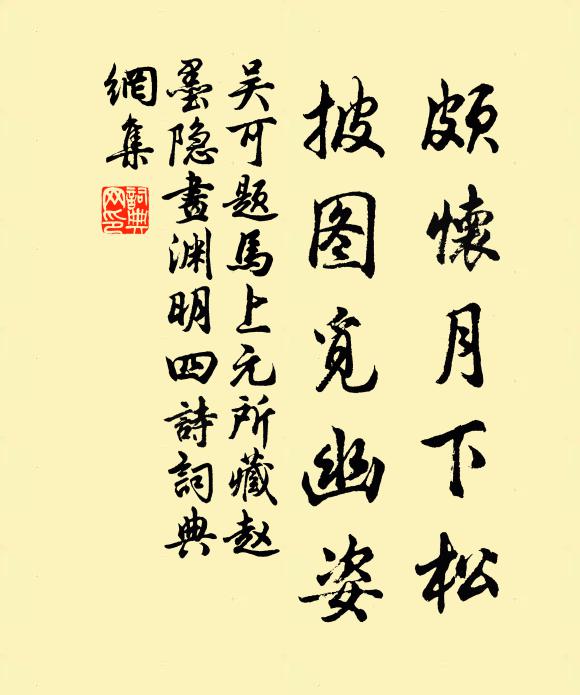 颇懷月下松
披图覓幽姿
吴可题馬上元所藏赵
墨隐畫渊明四詩詞典
網集
詞典
网印